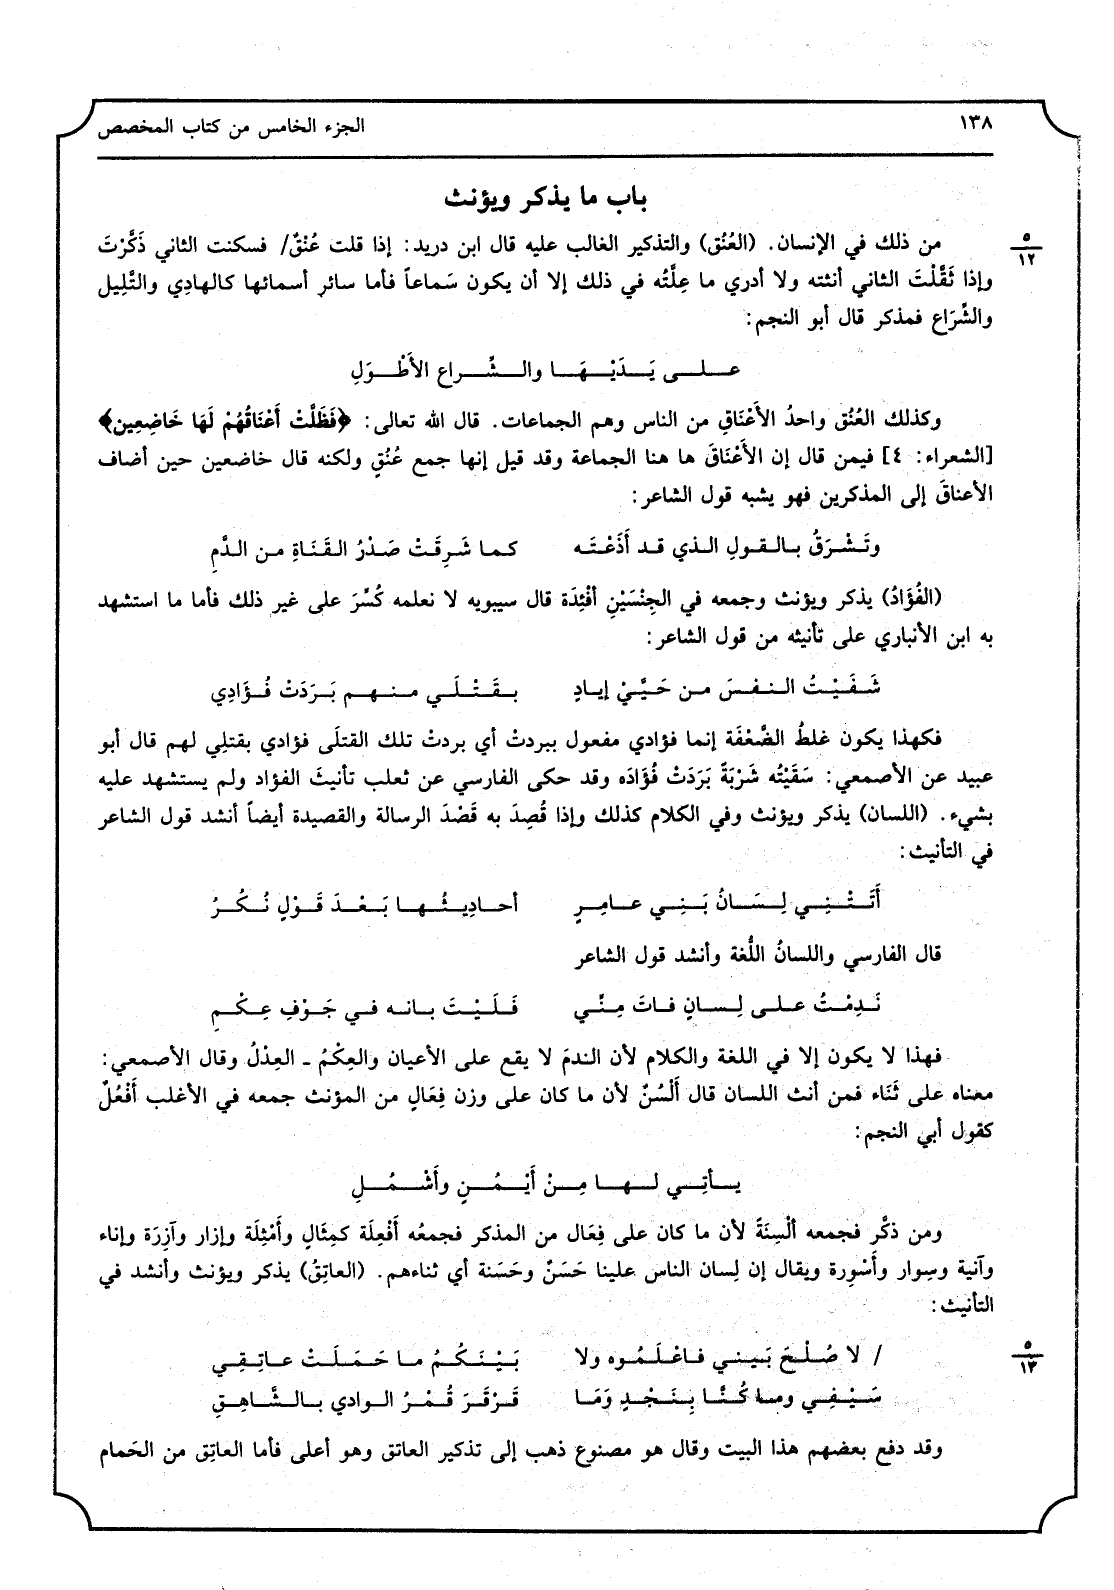 ١٣٨ الجزء الخامس من كتاب المخصص
باب ما يذكر ويؤنث
٥
١٢
من ذلك في الإنسان. (العُنُق) والتذكير الغالب عليه قال ابن دريد: إذا قلت عُنْقٌ/ فسكنت الثاني ذَكَّرْتَ
وإذا ثَقَّلْتَ الثاني أنثته ولا أدري ما عِلَّتُه في ذلك إلا أن يكون سَماعاً فأما سائر أسمائها كالهادِي والتَّلِيل
والشِّرَاع فمذكر قال أبو النجم:
عـلـى يَـدَيْـهَـا والـشِّـراع الأَطْـوَلِ
وكذلك العُنُق واحدُ الأَعْنَاقِ من الناس وهم الجماعات. قال الله تعالى: ﴿فَظَلَّتْ أَعْنَاقُهُمْ لَهَا خَاضِعِين﴾
[الشعراء: ٤] فيمن قال إن الأَعْنَاقَ ها هنا الجماعة وقد قيل إنها جمع عُنُقٍ ولكنه قال خاضعين حين أضاف
الأعناقَ إلى المذكرين فهو يشبه قول الشاعر:
وتَـشْـرَقُ بـالـقـولِ الـذي قـد أَذَعْـتَـه كـمـا شَـرِقَـتْ صَـدْرُ الـقَـنَـاةِ مـن الـدَّمِ
(الفُؤَادُ) يذكر ويؤنث وجمعه في الجِنْسَيْنِ أفْئِدَة قال سيبويه لا نعلمه كُسِّرَ على غير ذلك فأما ما استشهد
به ابن الأنباري على تأنيثه من قول الشاعر:
شَـفَـيْـتُ الـنـفـسَ مـن حَـيَّـيْ إيـادٍ بـقَـتْـلَـي مـنـهـم بَـرَدَتْ فُـؤَادِي
فكهذا يكون غلطُ الضَّعْفَة إنما فؤادي مفعول ببردتْ أي بردتْ تلك القتلَى فؤادي بقتلِي لهم قال أبو
عبيد عن الأصمعي: سَقَيْتُه شَرْبَةً بَرَدَتْ فُؤَادَه وقد حكى الفارسي عن ثعلب تأنيثَ الفؤاد ولم يستشهد عليه
بشيء. (اللسان) يذكر ويؤنث وفي الكلام كذلك وإذا قُصِدَ به قَصْدَ الرسالة والقصيدة أيضاً أنشد قول الشاعر
في التأنيث:
أَتَـتْـنِـي لِـسَـانُ بَـنِـي عـامِـرٍ أحـادِيـثُـهـا بَـعْـدَ قَـوْلٍ نُـكُـرُ
قال الفارسي واللسانُ اللُّغة وأنشد قول الشاعر
نَـدِمْـتُ عـلـى لِـسـانٍ فـاتَ مِـنِّـي فَـلَـيْـتَ بـانـه فـي جَـوْفِ عِـكْـمِ
فهذا لا يكون إلا في اللغة والكلام لأن الندمَ لا يقع على الأعيان والعِكْمُ ـ العِدْلُ وقال الأصمعي:
معناه على ثَنَاء فمن أنث اللسان قال أَلْسُنٌ لأن ما كان على وزن فِعَالٍ من المؤنث جمعه في الأغلب أَفْعُلٌ
كقول أبي النجم:
يـأتِـي لـهـا مِـنْ أَيْـمُـنٍ وأَشْـمُـلِ
ومن ذكَّر فجمعه أَلْسِنَةً لأن ما كان على فِعَال من المذكر فجمعُه أَفْعِلَة كمِثَالٍ وأَمْثِلَة وإزار وآزِرَة وإناء
وآنية وسِوار وأَسْورة ويقال إن لِسان الناس علينا حَسَنٌ وحَسَنة أي ثناءهم. (العاتِقُ) يذكر ويؤنث وأنشد في
التأنيث:
٥
١٣
/ لا صُـلْـحَ بَـيـنـي فـاعْـلَـمُـوه ولا بَـيْـنَـكُـمُ مـا حَـمَـلَـتْ عـاتِـقـي
سَـيْـفِـي ومـا كُـنَّـا بِـنَـجْـدٍ وَمَـا قَـرْقَـرَ قُـمْـرُ الـوادي بـالـشَّـاهِـقِ
وقد دفع بعضهم هذا البيت وقال هو مصنوع ذهب إلى تذكير العاتق وهو أعلى فأما العاتِق من الحَمام